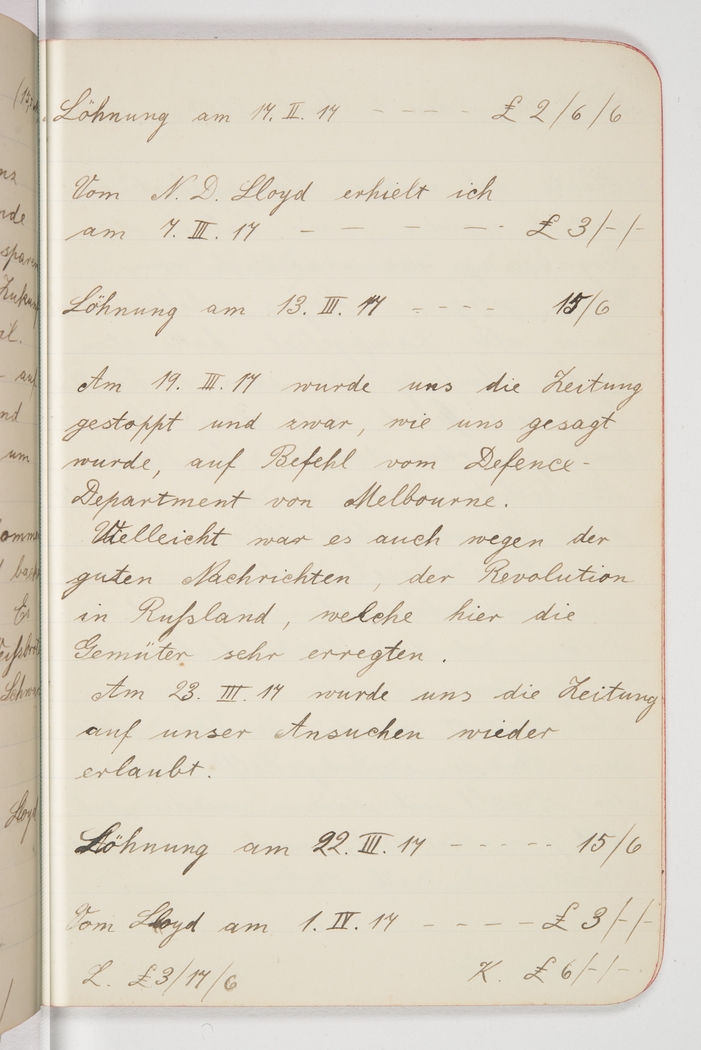 Löhnung am 17. II. 17 - - - - £ 2/6/6
Vom N. D. Lloyd erhielt ich
am 7. III. 17 - - - - - £ 3/-/-
Löhnung am 13. III. 17 - - - - 15/6
Am 19. III. 17 wurde uns die Zeitung
gestoppt und zwar, wie uns gesagt
wurde, auf Befehl vom Defence-
Department von Melbourne.
Vielleicht war es auch wegen der
guten Nachrichten, der Revolution
in Rußland, welche hier die
Gemüter sehr erregten.
Am 23. III. 17 wurde uns die Zeitung
auf unser Ansuchen wieder
erlaubt.
Löhnung am 22. III. 17 - - - - - 15/6
Vom Lloyd am 1. IV. 17 - - - - - £ 3/-/-
L. £ 3/17/6 K. £ 6/-/-